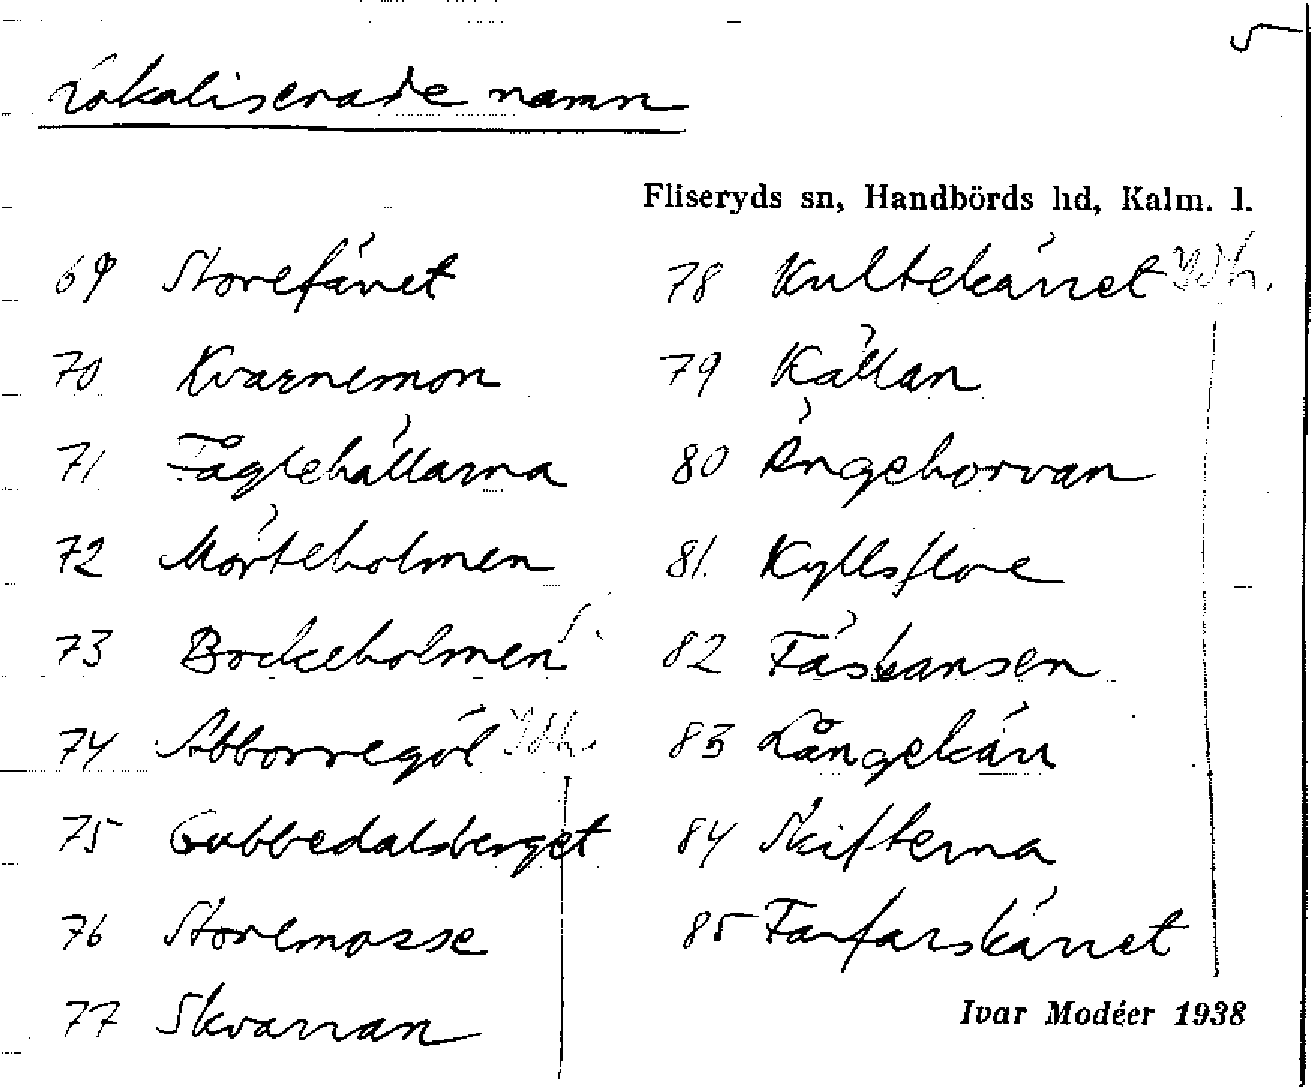 5
Lokaliserade namn
Fliseryds sn, Handbörds hd, Kalm. l.
69 Storefäret
70 Kvarnemon
71 Faglehällarna
72 Mörteholmen
73 Bockeholmen
74 Abborregöl
75 Gubbedalsberget
76 Storemosse
77 Skvarran
78 Kultekärret
79 Källan
80 Ängehorvan
81. Kyllsfloe
82 Fäskansen
83 Långekärr
84 Skifterna
85 Farfarskärret
Ivar Modéer 1938